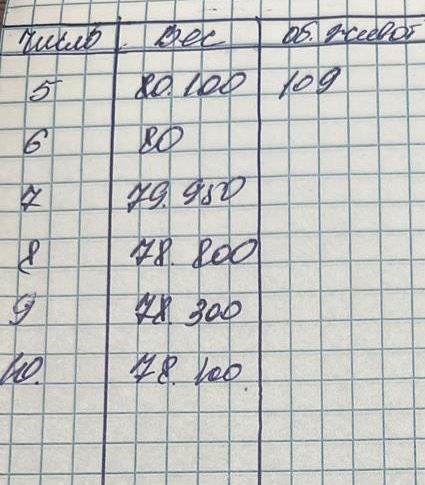 число вес об. живот
5 80.100 109
6 80
7 79.950
8 78.800
9 78.300
10. 78.100